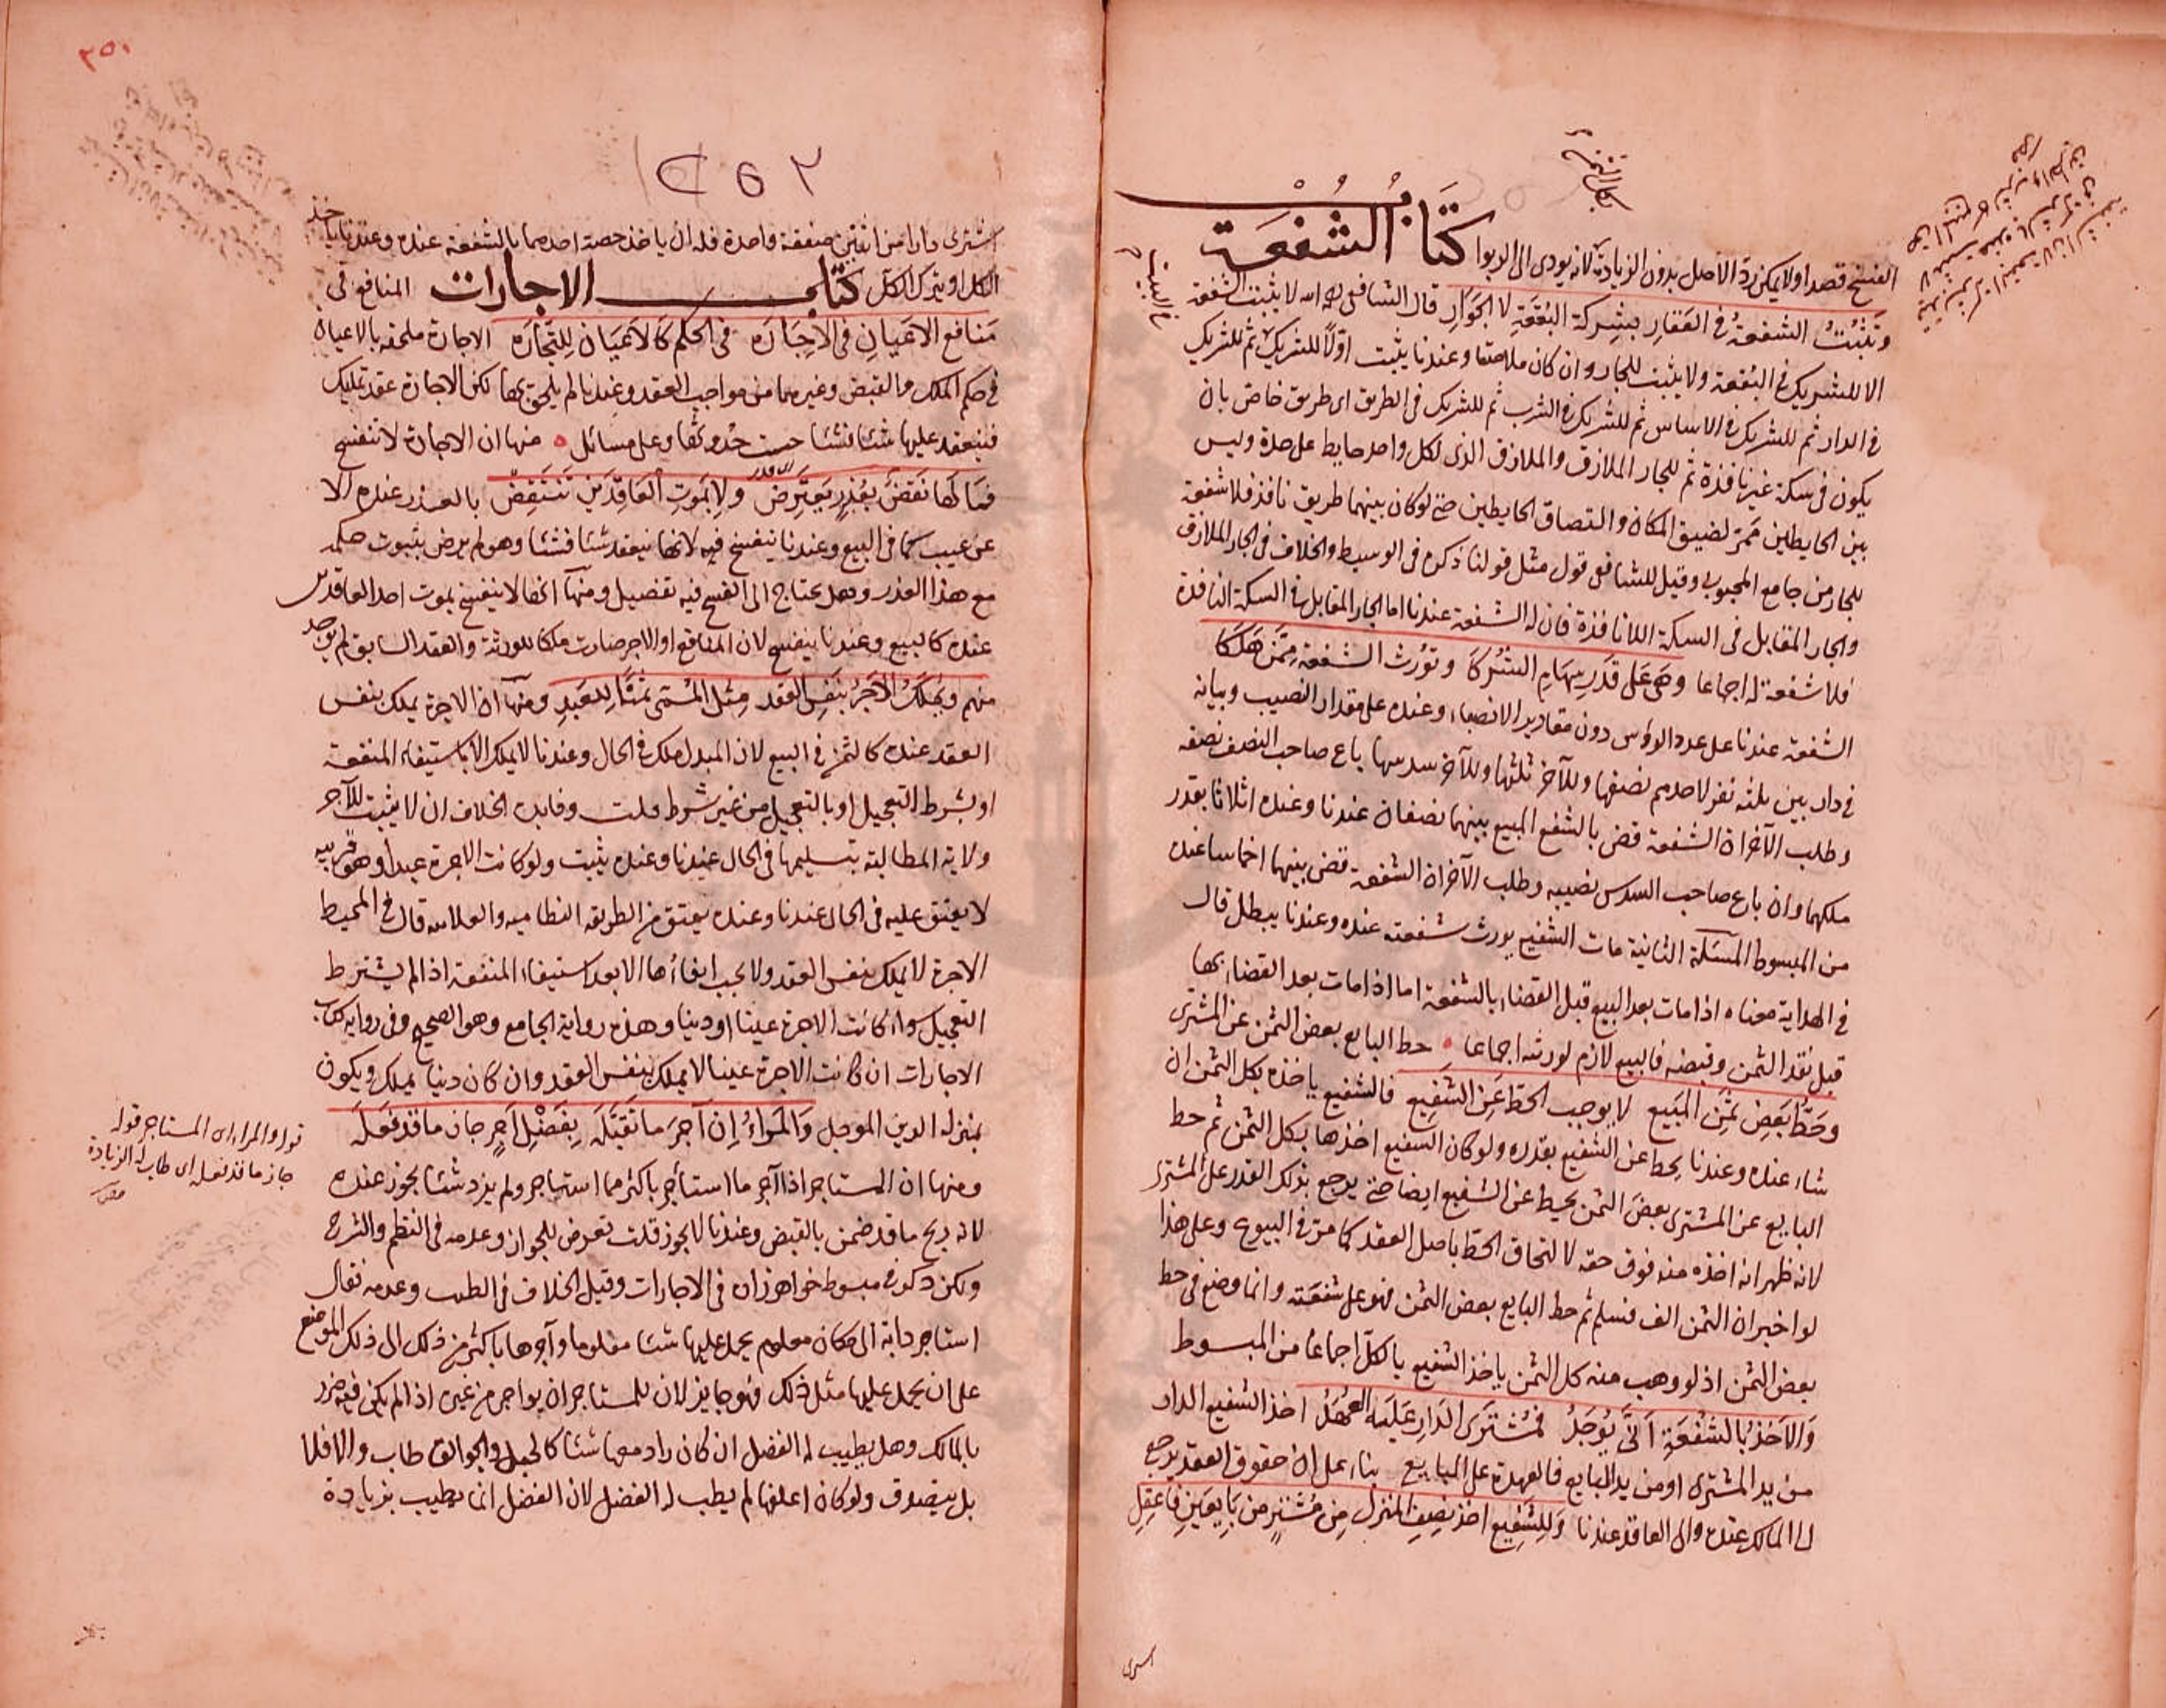 الفسخ قصدا ولا يمكن رد الاصل بدون الزيادة لانه يودى الى الربوا كتاب الشفعة
وتثبت الشفعة في العقار بشركة البقعة لا الجوار قال الشافعي رحمه الله لا يثبت الشفعة
الا للشريك في البقعة ولا يثبت للجار وان كان ملاصقا وعندنا يثبت اولا للشريك ثم للشريك
في الدار ثم للشريك في الاساس ثم للشريك في الشرب ثم للشريك في الطريق اى طريق خاص بان
يكون في سكة غير نافذة ثم للجار الملازق والملازق الذى لكل واحد حايط على حدة وليس
بين الحايطين ممر لضيق المكان والتصاق الحايطين حتى لو كان بينهما طريق نافذ فلا شفعة
للجار من جامع المحبوبي وقيل للشافعي قول مثل قولنا ذكره في الوسيط والخلاف في الجار الملازق
والجار المقابل في السكة اللا نافذة فان له الشفعة عندنا اما الجار المقابل في السكة النافذة
فلا شفعة له اجماعا وهي على قدر سهام الشركا وتورث الشفعة ممن هلكا
الشفعة عندنا على عدد الروس دون مقادير الانصباء وعنده على مقدار النصيب وبيانه
في دار بين ثلثة نفر لاحدهم نصفها وللآخر ثلثها وللآخر سدسها باع صاحب النصف نصفه
وطلب الآخران الشفعة قضى بالشفع المبيع بينهما نصفان عندنا وعنده اثلاثا بقدر
ملكهما وان باع صاحب السدس نصيبه وطلب الآخران الشفعة قضى بينهما اخماسا عنده
من المبسوط المسئلة الثانية مات الشفيع يورث شفعته عنده وعندنا يبطل قال
في الهداية معناه اذا مات بعد البيع قبل القضاء بالشفعة اما اذا مات بعد القضاء بها
قبل نقد الثمن وقبضه فالبيع لازم لورثته اجماعا حط البايع بعض الثمن عن المشترى
وحط بعض ثمن المبيع لا يوجب الحط عن الشفيع فالشفيع ياخذه بكل الثمن ان
شاء عنده وعندنا يحط عن الشفيع بقدره ولو كان الشفيع اخذها بكل الثمن ثم حط
البايع عن المشترى بعض الثمن يحط عن الشفيع ايضا حتى يرجع بذلك القدر على المشترى
لانه ظهر انه اخذه منه فوق حقه لالتحاق الحط باصل العقد كما مر في البيوع وعلى هذا
لو اخبر ان الثمن الف فسلم ثم حط البايع بعض الثمن فهو على شفعته وانما وضع في حط
بعض الثمن اذ لو وهب منه كل الثمن ياخذ الشفيع بالكل اجماعا من المبسوط
والاخذ بالشفعة انى يوجد فمشترى الدار عليه العهد اخذ الشفيع الدار
من يد المشترى او من يد البايع فالعهدة على البايع بناء على ان حقوق العقد يرجع
الى المالك عنده والى العاقد عندنا وللشفيع اخذ نصف المنزل من مشتر من بايعين فاعقل
اشترى دارا من اثنين صفقة واحدة فله ان ياخذ حصة احدهما بالشفعة عنده وعندنا ياخذ
الكل او يترك الكل كتاب الاجارات المنافع في
منافع الاعيان في الاجاره في الحكم كالاعيان للتجاره الاجارة ملحقه بالاعيان
في حكم الملك والقبض وغيرهما من مواجب العقد وعندنا لم يلحق بها لكن الاجارة عقد تمليك
فينعقد عليها شيئا فشيئا حسب حدوثها وعلى مسائل منها ان الاجارة لا تنفسخ
فما لها نقض بعذر يعترض ولا بموت العاقدين تنتقض بالعذر عنده الا
عن عيب كما في البيع وعندنا تنفسخ فيه لانها ينعقد شيئا فشيئا وهو لم يرض بثبوت حكمه
مع هذا العذر وهل يحتاج الى الفسخ فيه تفصيل ومنها انها لا ينفسخ بموت احد العاقدين
عنده كالبيع وعندنا ينفسخ لان المنافع او الاجر صارت ملكا للورثة والعقد السابق لم يوجد
منهم ويملك الاجر بنفس العقد مثل المسمى ثمنا للعبد ومنها ان الاجرة يملك بنفس
العقد عنده كالثمن في البيع لان المبدل ملك في الحال وعندنا لا يملك الا باستيفاء المنفعة
او بشرط التعجيل او بالتعجيل من غير شرط قلت وفايدة الخلاف ان لا يثبت للآجر
ولاية المطالبة بتسليمها في الحال عندنا وعنده يثبت ولو كانت الاجرة عبدا وهو قريبه
لا يعتق عليه في الحال عندنا وعنده يعتق من الطريقه النظاميه والعلاميه قال في المحيط
الاجرة لا يملك بنفس العقد ولا يجب ايفاؤها الا بعد استيفاء المنفعة اذا لم يشترط
التعجيل سواء كانت الاجرة عينا او دينا وهذه رواية الجامع وهو الصحيح وفي رواية كتاب
الاجارات ان كانت الاجرة عينا لا يملك بنفس العقد وان كان دينا يملك ويكون
بمنزله الدين الموجل والمراء ان آجر ما تقبله بفضل اجر جاز ما قد فعله
ومنها ان المستاجر اذا آجر ما استأجر باكثر مما استاجر ولم يزد شئا يجوز عنده
لانه ربح ما قد ضمن بالقبض وعندنا لا يجوز قلت تعرض للجواز وعدمه في النظم والشرح
ولكن ذكر في مبسوط خواهرزاده في الاجارات وقيل الخلاف في الطيب وعدمه فقال
استاجر دابة الى مكان معلوم يحمل عليها شئا معلوما وآجرها باكثر من ذلك الى ذلك الموضع
على ان يحمل عليها مثل ذلك فهو جايز لان للمستاجر ان يواجر من غيره اذا لم يكن فيه ضرر
بالمالك وهل يطيب له الفضل ان كان زاد معها شئا كالحبل والجوالق طاب والا فلا
بل يتصدق ولو كان اعلفها لم يطب له الفضل لان الفضل انما يطيب بزيادة
قوله والمراء اى المستاجر قوله
جاز ما قد فعله اى طاب له الزيادة
٢٥٢
٢٥٠